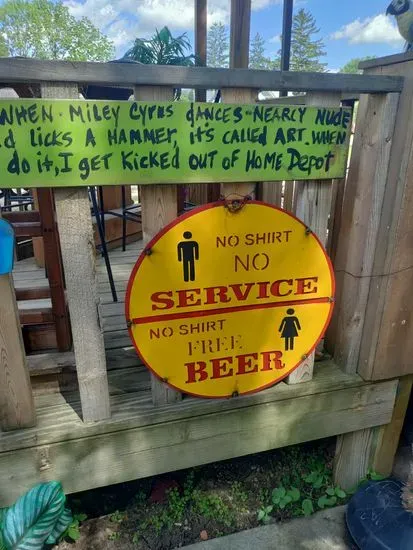 WHEN MILEY CYRUS DANCES NEARLY NUDE
d LICKS A HAMMER, it's CALLED ART. WHEN
do it, I get KICKED OUT OF HOME DEPOT
NO SHIRT
NO
SERVICE
NO SHIRT
FREE
BEER